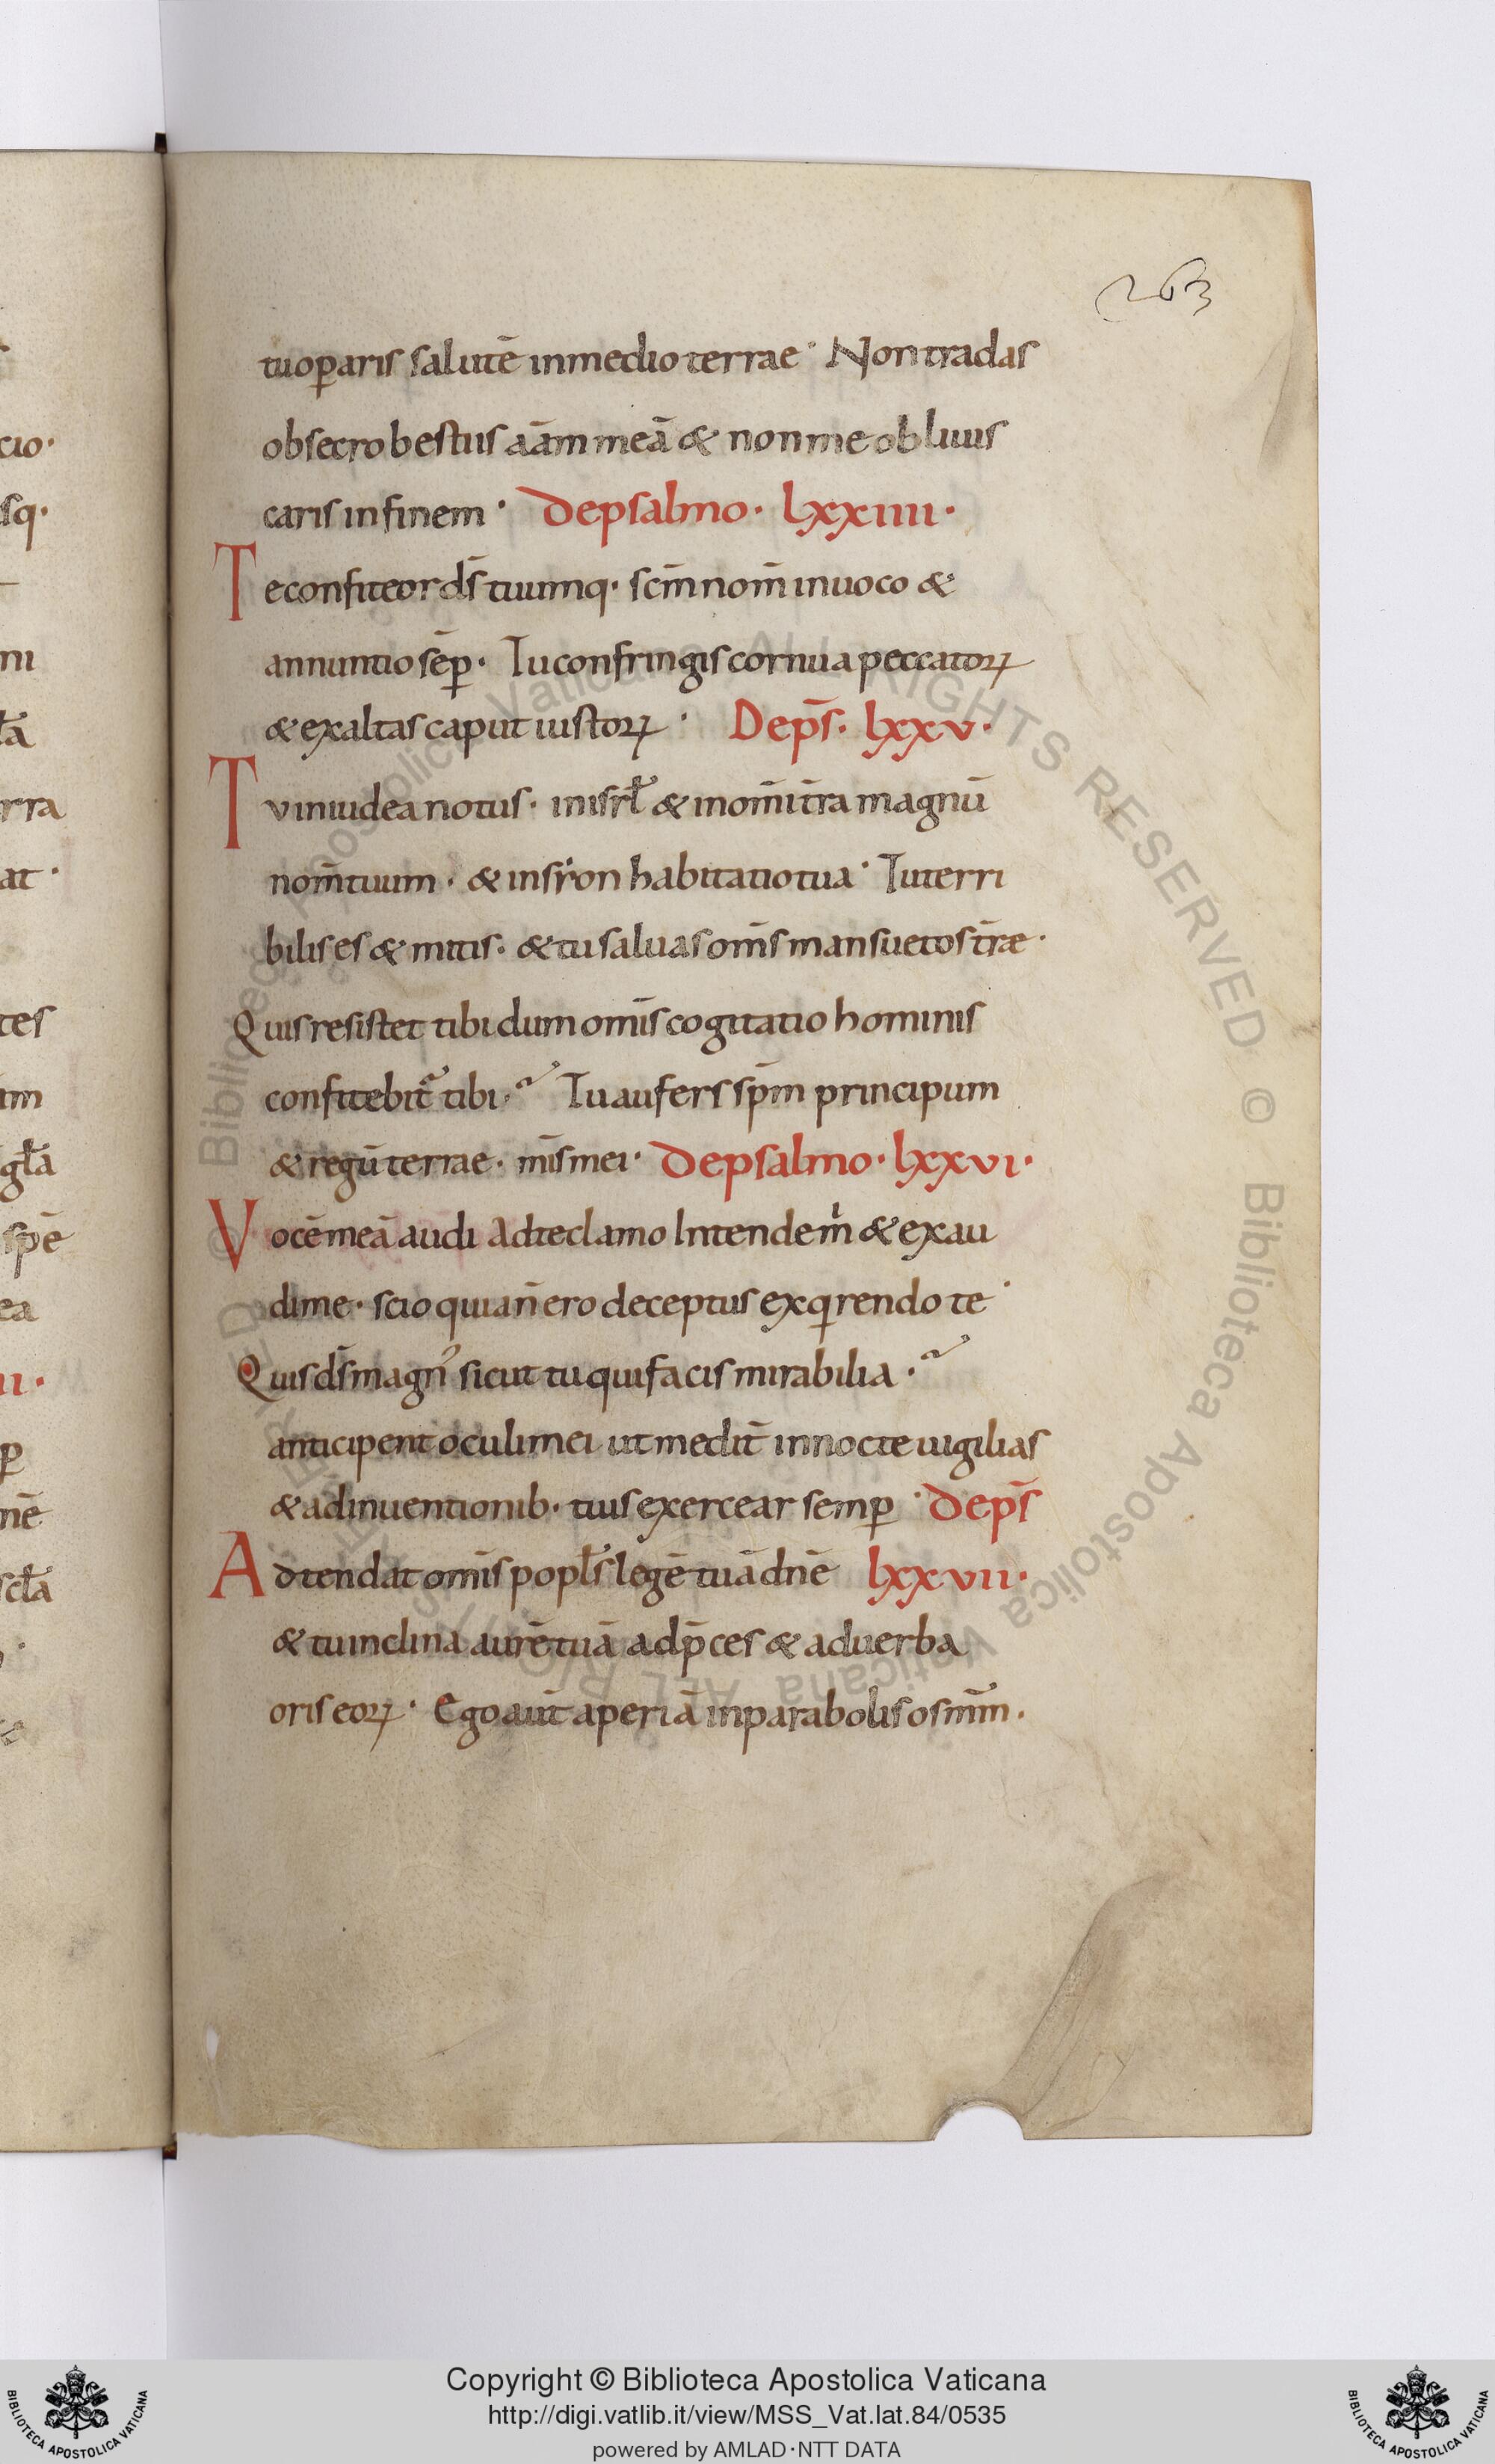 263
tuoꝑaris salutē in medio terrae · Non tradas
obsecro bestiis aām meā & non me obliuis
caris in finem · De psalmo · lxxiiii ·
Te confiteor d̄s tuumq· sc̄m nom̄ inuoco &
annuntio sēp · Tu confringis cornua peccatoꝝ
& exaltas caput iustoꝝ · De ps̄ · lxxv ·
Tu in iudea notus · in isrł & in om̄i t̄ra magnū
nom̄ tuum · & in syon habitatio tua · Tu terri
bilis es & mitis · & tu saluas om̄s mansuetos t̄rae ·
Quis resistet tibi dum om̄is cogitatio hominis
confitebit̄ tibi · Tu aufers sp̄m principum
& regū terrae · mīs mei · De psalmo · lxxvi ·
Vocē meā audi Ad te clamo Intende m̄ & exau
di me · scio quia n̄ ero deceptus exqrendo te ·
Quis d̄s magn᾽ sicut tu qui facis mirabilia ·
anticipent oculi mei ut medit̄ in nocte uigilias
& adinuentionib· tuis exercear semꝑ · De ps̄
Adtendat om̄is popłs legē tuā dn̄e lxxvii ·
& tu inclina aurē tuā ad p̄ces & ad uerba
oris eoꝝ · Ego aūt aperiā in parabolis os m̄m ·
cio·
sq·
ni
rra
at ·
tes
im
gła
spē
ea
ii ·
ꝑ
nē
scła
© Biblioteca Apostolica Vaticana ALL RIGHTS RESERVED © Biblioteca Apostolica Vaticana ALL RIGHTS RESERVED
BIBLIOTECA APOSTOLICA VATICANA
Copyright © Biblioteca Apostolica Vaticana
http://digi.vatlib.it/view/MSS_Vat.lat.84/0535
powered by AMLAD·NTT DATA
BIBLIOTECA APOSTOLICA VATICANA